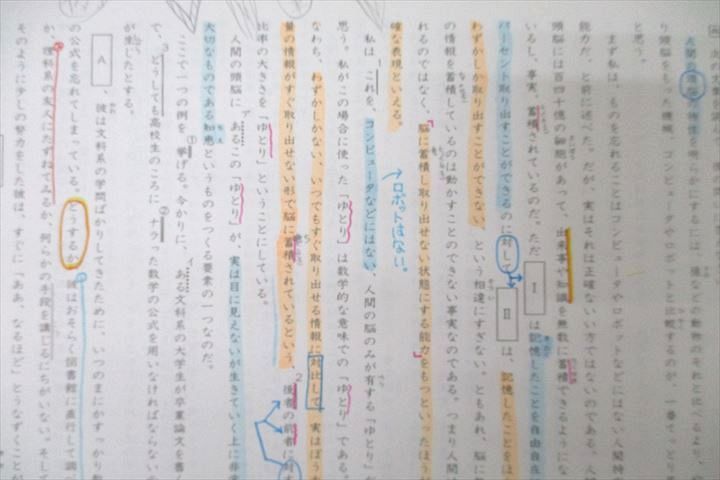 人間の頭脳の特性を明らかにするには、猿などの動物のそれと比べるより、
り頭脳をもった機械、コンピュータやロボットと比較するのが、一番て
と思う。
まず私は、ものを忘れることはコンピュータやロボットなどにはない人間特
能力だ、と前に述べた。だが、実はそれは正確ないい方ではないのである。人
頭脳には百四十億の細胞があって、出来事や知識を無数に蓄積できるようにな
いるし、事実、蓄積されているのだ。ただ Ⅰ は記憶したことを自由自在
パーセント取り出すことができるのに対して Ⅱ は、記憶したことをほ
わずかしか取り出すことができない、という相違にすぎない。ともあれ、脳に
の情報を蓄積しているのは動かすことのできない事実なのである。つまり人間は
れるのではなく、脳に蓄積し取り出せない状態にする能力をもつといったほうが
確な表現といえる。
→ロボットはない。
私は 1これを、コンピュータなどにはない、人間の脳のみが有する「ゆとり」だ
思う。私がこの場合に使った「ゆとり」は数学的な意味での「ゆとり」である。
なわち、わずかしかない、いつでもすぐ取り出せる情報に対比して、実はぼう大
量の情報がすぐ取り出せない形で脳に蓄積されているという、2後者の前者に対す
比率の大きさを「ゆとり」ということにしている。
人間の頭脳に アあるこの「ゆとり」が、実は目に見えないが生きていく上に非常
大切なものである知恵というものをつくる要素の一つなのだ。
ここで一つの例を①挙げる。今かりに、イある文科系の大学生が卒業論文を書く
で、3どうしても高校生のころに②ナラった数学の公式を用いなければならない
が生じたとする。
A 、彼は文科系の学問ばかりしてきたために、いつのまにかすっかり数
の公式を忘れてしまっている。どうするか。彼はおそらく図書館に直行して調べ
か、理科系の友人にたずねてみるか、何らかの手段を講じるにちがいない。そして
そのように少しの努力をした彼は、すぐに「ああ、なるほど」とうなずくことが